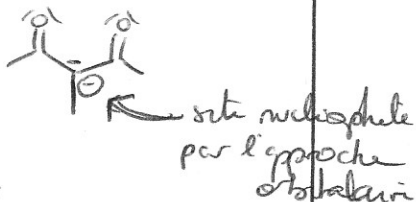 O O
⊖
site nucléophile
par l'approche
orbitalaire